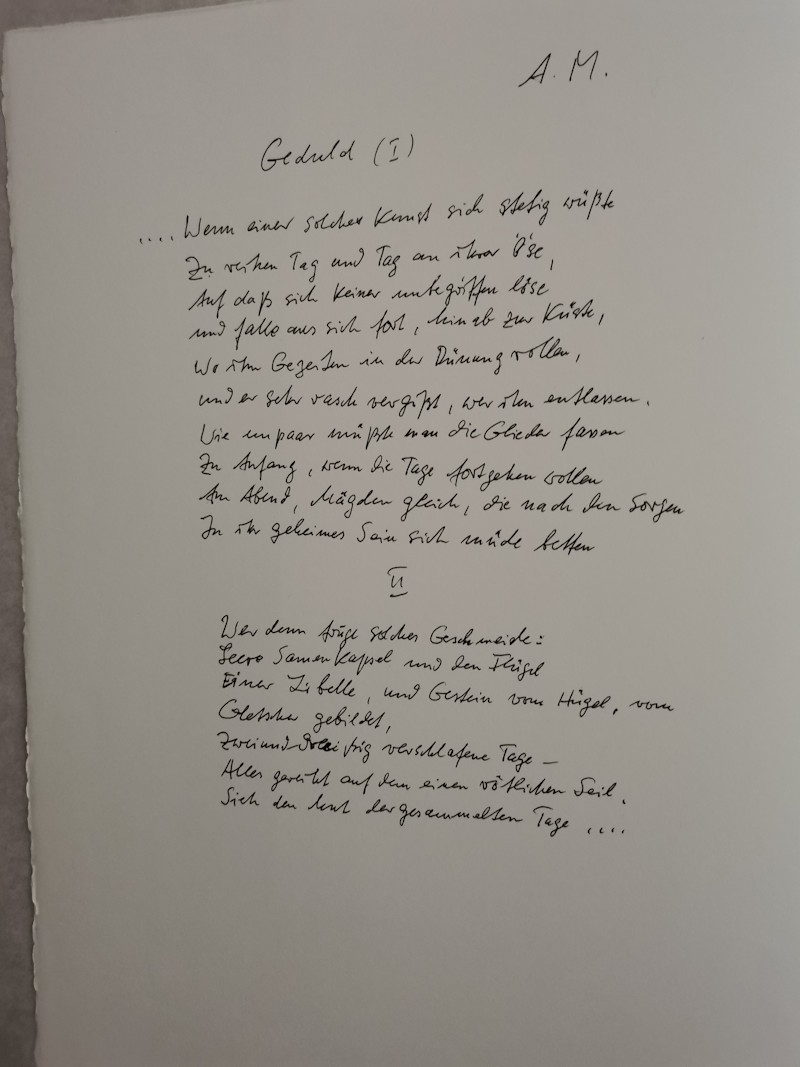 A. M.
Geduld (I)
.... Wenn einer solcher Kunst sich stetig wüßte
Zu reihen Tag und Tag an ihrer Öse,
Auf daß sich keiner unbegriffen löse
und falle aus sich fort, hinab zur Küste,
Wo ihn Gezeiten in der Dünung rollen,
und er sehr rasch vergißt, wer ihn entlassen.
Wie unpaar müßte man die Glieder fassen
Zu Anfang, wenn die Tage fortgehen wollen
Am Abend, Mägden gleich, die nach den Sorgen
In ihr geheimes Sein sich müde betten
II
Wer denn trüge solches Geschmeide:
Leere Samenkapsel und den Flügel
Einer Libelle, und Gestein vom Hügel, vom
Gletscher gebildet,
Zweiunddreißig verschlafene Tage –
Alles gereiht auf dem einen rötlichen Seil.
Sieh den der gesammelten Tage ....